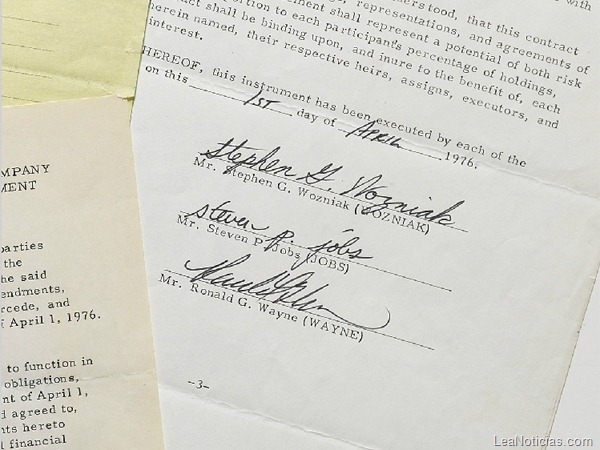 with
tood, that this contract
representations, and agreements of
shall represent a potential of both risk
to each participant's percentage of holdings,
shall be binding upon, and inure to the benefit of, each
herein named, their respective heirs, assigns, executors, and
interest.
HEREOF, this instrument has been executed by each of the
on this 1ST day of APRIL 1976.
Stephen G. Wozniak
Mr. Stephen G. Wozniak (WOZNIAK)
steven p. jobs
Mr. Steven P. Jobs (JOBS)
Mr. Ronald G. Wayne (WAYNE)
-3-
OMPANY
MENT
parties
the
he said
endments,
rcede, and
f April 1, 1976.
to function in
obligations,
nt of April 1,
d agreed to,
nts hereto
l financial
LeaNoticias.com